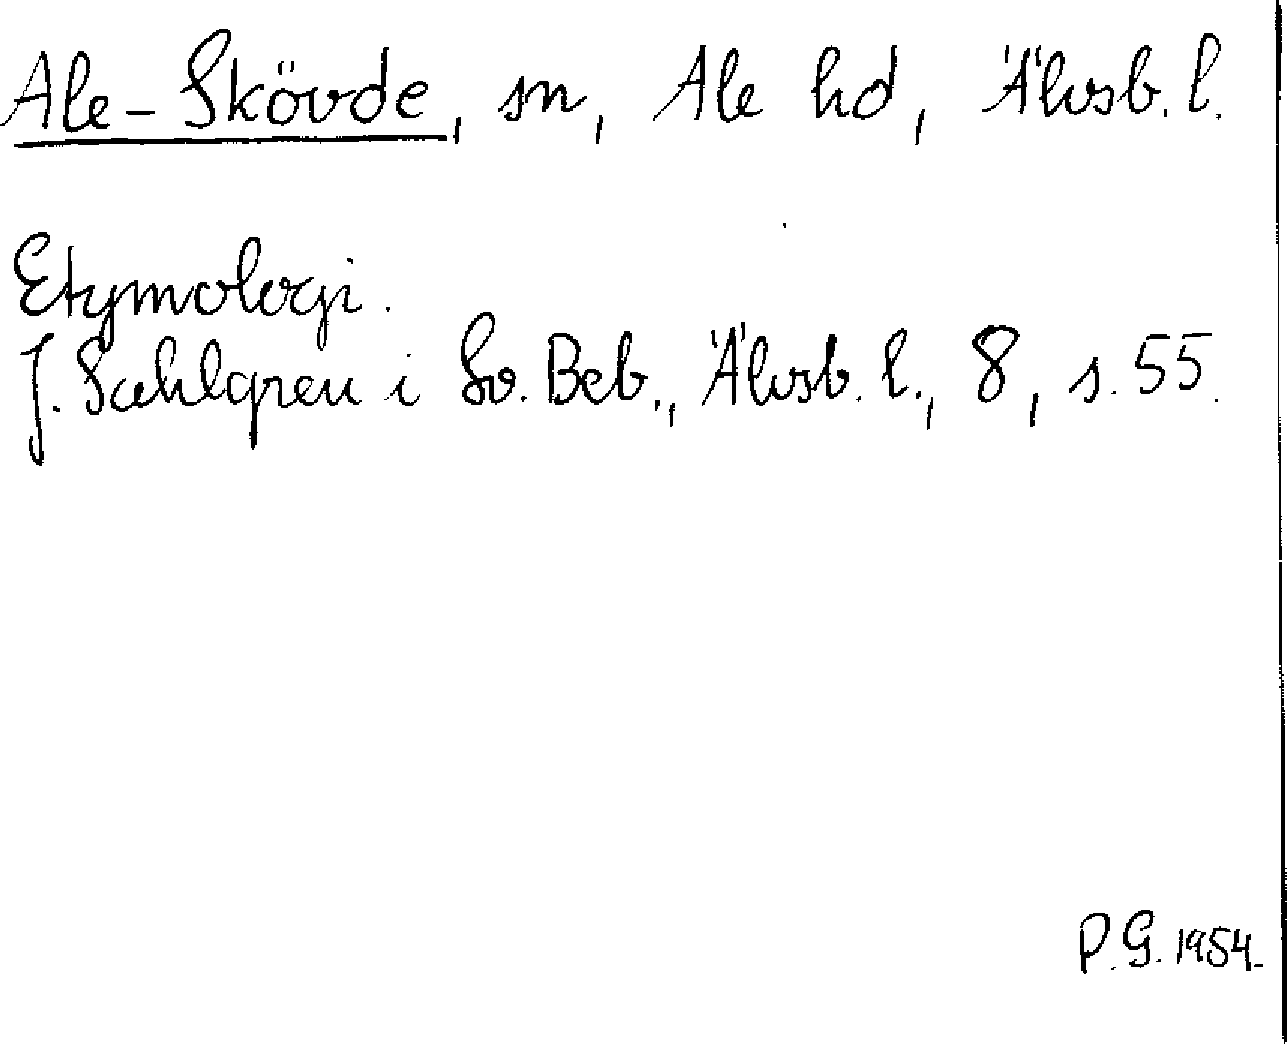 Ale-Skövde, sn, Ale hd, Älvsb. l.
Etymologi.
J. Sahlgren i Sv. Beb., Älvsb. l., 8, s. 55.
P.G. 1954.